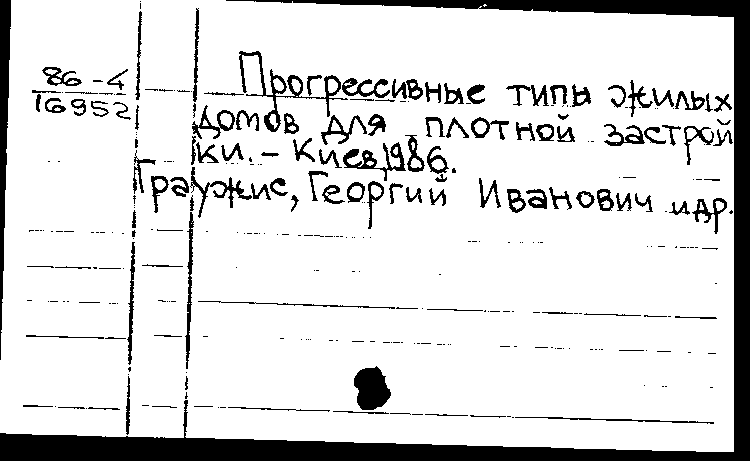 86-4
16952
Прогрессивные типы жилых
домов для плотной застрой
ки. - Киев, 1986.
Граужис, Георгий Иванович и др.